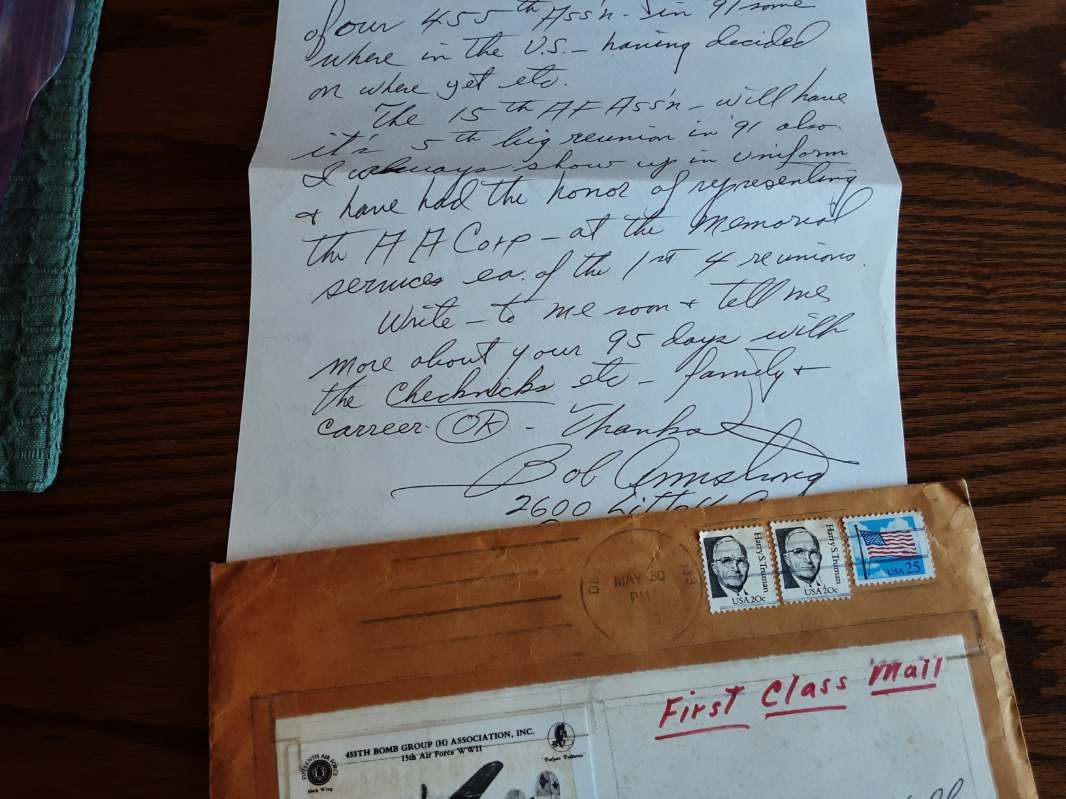 of our 455th Ass'n. in '91 some
where in the U.S. – having decided
on where yet etc.
The 15th AF Ass'n – will have
it's 5th big reunion in '91 also.
I always show up in uniform
+ have had the honor of representing
the A A Corp – at the Memorial
services ea. of the 1st 4 reunions.
Write – to me soon + tell me
more about your 95 days with
the Chetnicks etc – family +
carreer. OK – Thanks
Bob Armstrong
2600
MAY 30
PM
Harry S. Truman
USA 20c
Harry S. Truman
USA 20c
USA 25
First Class Mail
455TH BOMB GROUP (H) ASSOCIATION, INC.
15th Air Force WWII
FIFTEENTH AIR FORCE
Vulgar Vultures